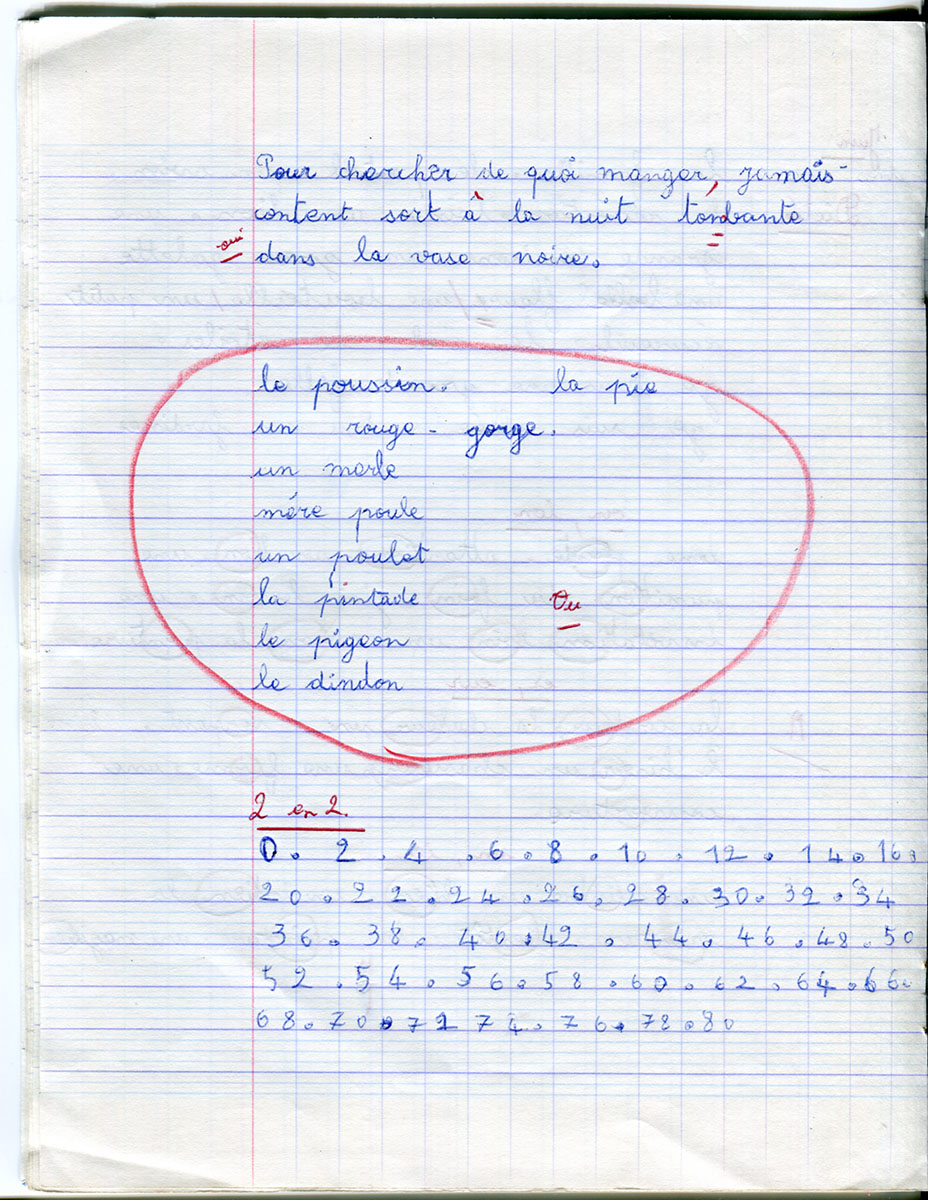 Pour chercher de quoi manger, jamais-
content sort à la nuit tonbante
oui
dans la vase noire.
le poussin. la pie
un rouge-gorge.
un merle
mére poule
un poulet
la pintade Vu
le pigeon
le dindon
2 en 2.
0. 2. 4. 6. 8. 10. 12. 14. 16.
20. 22. 24. 26. 28. 30. 32. 34
36. 38. 40. 42. 44. 46. 48. 50
52. 54. 56. 58. 60. 62. 64. 66.
68. 70. 72 74. 76. 78. 80